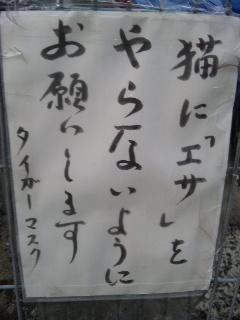 猫に「エサ」を
やらないように
お願いします
タイガーマスク